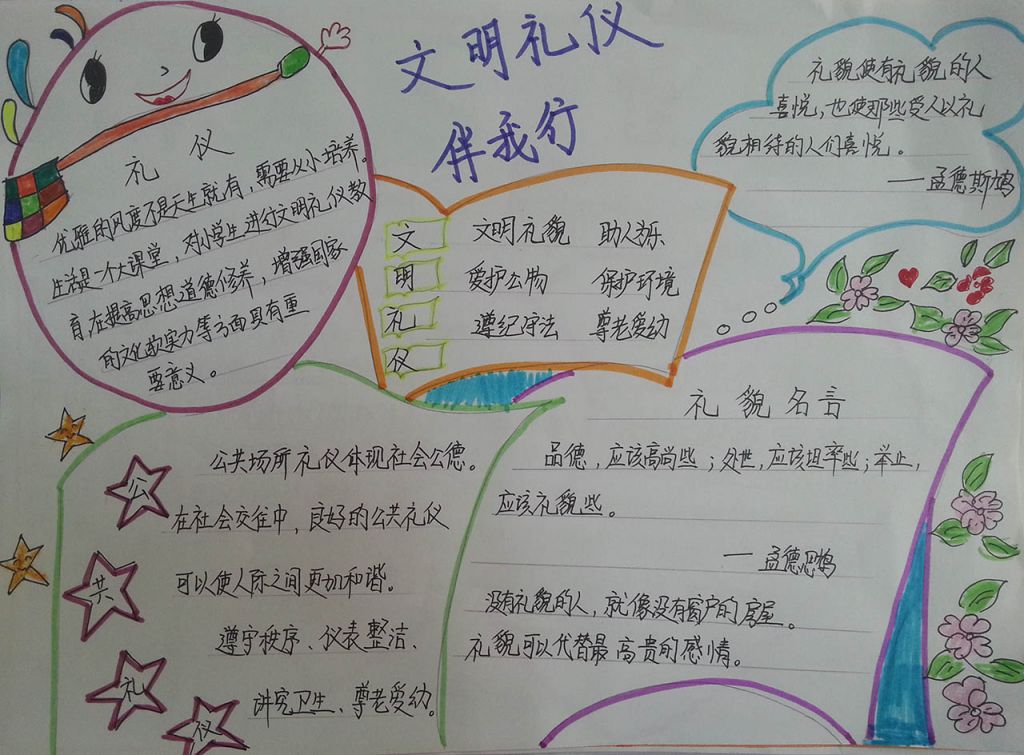 文明礼仪
伴我行
礼仪
优雅的风度不是天生就有，需要从小培养。
生活是一个大课堂，对小学生进行文明礼仪教
育在提高思想道德修养，增强国家
的文化软实力等方面具有重
要意义。
文 文明礼貌 助人为乐
明 爱护公物 保护环境
礼 遵纪守法 尊老爱幼
仪
礼貌使有礼貌的人
喜悦，也使那些受人以礼
貌相待的人们喜悦。
——孟德斯鸠
公共礼仪
公共场所礼仪体现社会公德。
在社会交往中，良好的公共礼仪
可以使人际之间更加和谐。
遵守秩序、仪表整洁、
讲究卫生、尊老爱幼。
礼貌名言
品德，应该高尚些；处世，应该坦率些；举止，
应该礼貌些。
—孟德思鸠
没有礼貌的人，就像没有窗户的房屋。
礼貌可以代替最高贵的感情。